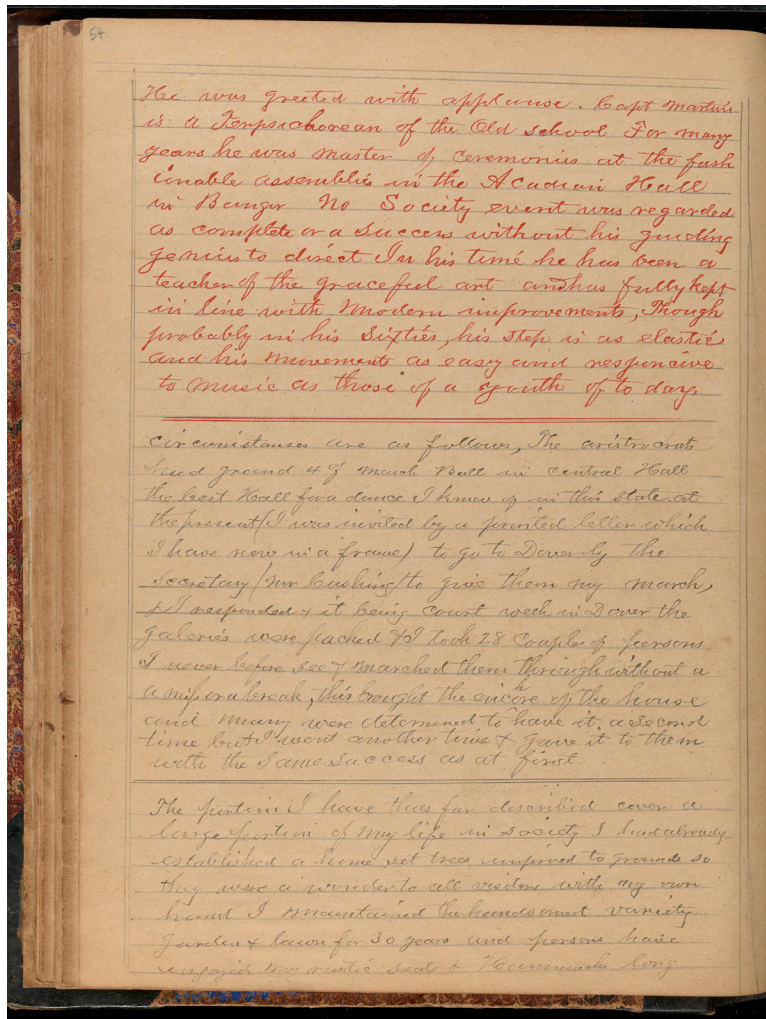 54
He was greeted with applause. Capt Martin
is a Terpsichorean of the Old school For many
years he was master of ceremonies at the fash
ionable assemblies in the Acadian Hall
in Bangor No Society event was regarded
as complete or a success without his guiding
genius to direct In his time he has been a
teacher of the graceful art and has fully kept
in line with Modern improvements, Though
probably in his Sixties, his step is as elastic
and his movements as easy and responcive
to music as those of a youth of to day.
circumstances are as follows, The aristrocrats
had grand 4 of March Ball in central Hall
the best Hall for a dance I know of in this state at
the present (I was invited by a printed letter which
I have now in a frame) to go to Dover by the
Secretary (Mr Cushing) to give them my march,
I responded & it being court week in Dover the
galeries were packed & I took 28 couples of persons
I never before see & marched them through without a
a miss or a break, this brought the encore of the house
and many were determined to have it a second
time but I went another time & gave it to them
with the same success as at first
The portion I have thus far described cover a
large portion of my life in society I had already
established a home set trees improved to grounds so
they were a wonder to all visitors with my own
hand I maintained the handsomest variety
garden & lawn for 30 years and persons have
enjoyed my rustic seats & Hammocks long